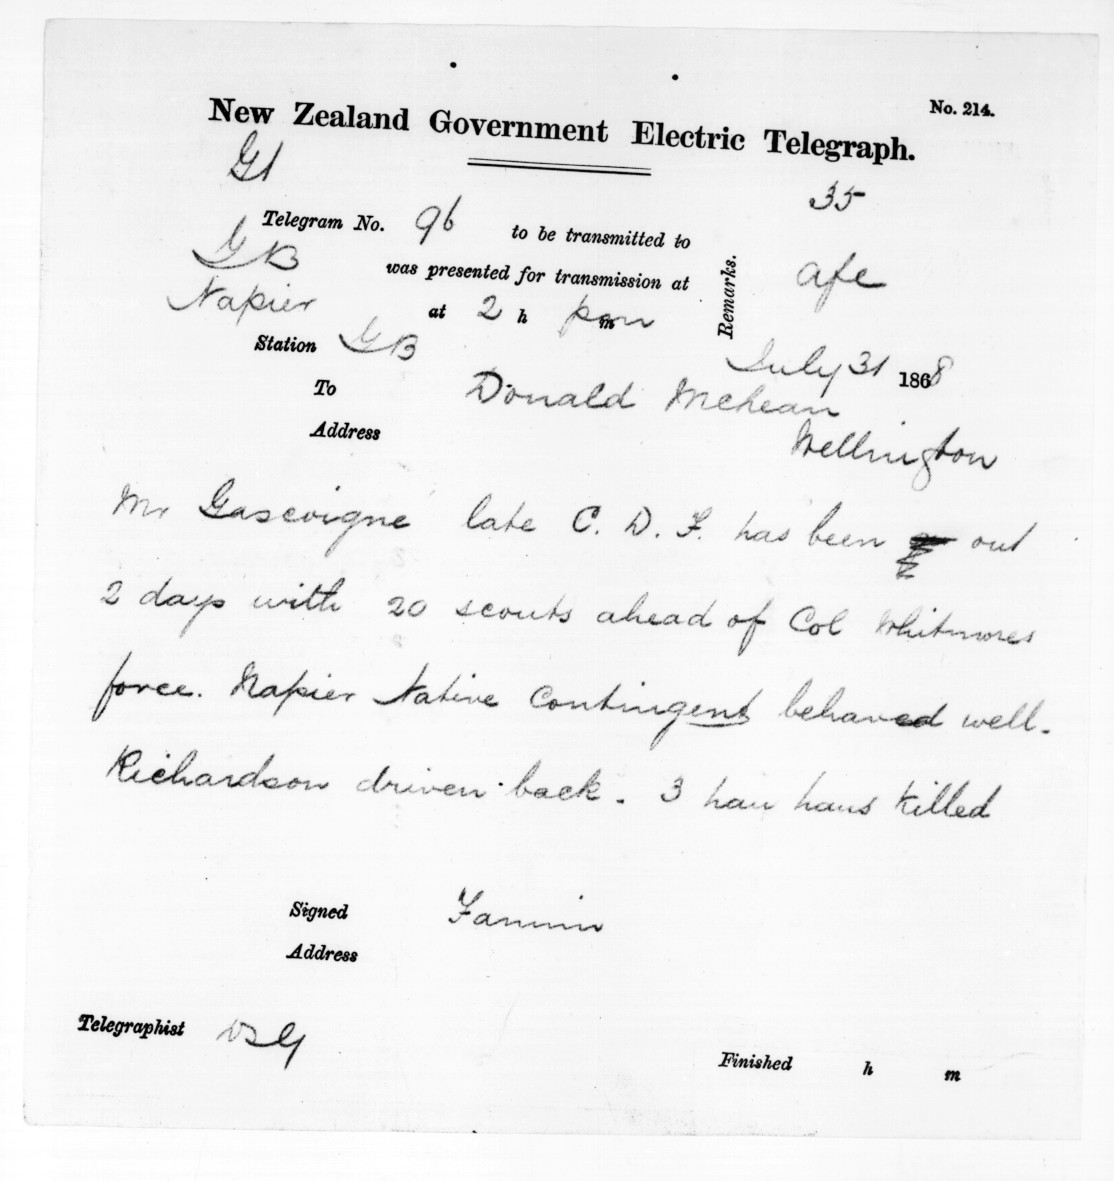 No. 214.
New Zealand Government Electric Telegraph.
G1
35
Telegram No. 96 to be transmitted to
GB
was presented for transmission at
Remarks.
afe
Napier
at 2 h pm m
Station GB
July 31 1868
To Donald McLean
Address Wellington
Mr Gascoigne late C. D. F. has been out
2 days with 20 scouts ahead of Col Whitmores
force. Napier Native Contingent behaved well.
Richardson driven back. 3 hau haus killed
Signed Fannin
Address
Telegraphist
Finished h m